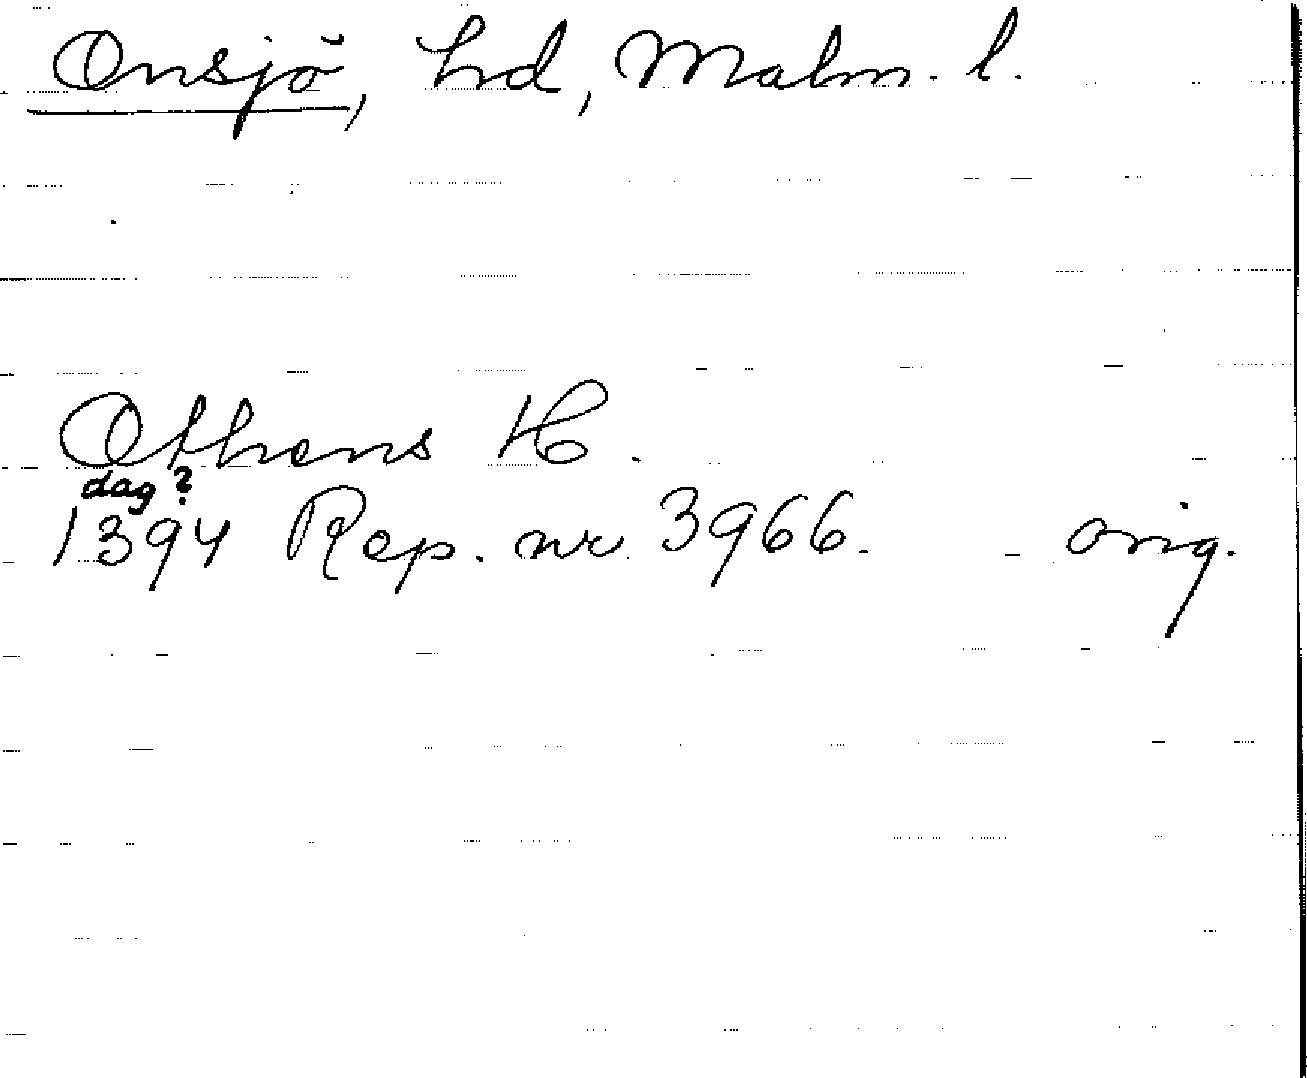 Onsjö, hd, Malm. l.
Othens H.
dag?
1394 Rep. nr. 3966. - orig.